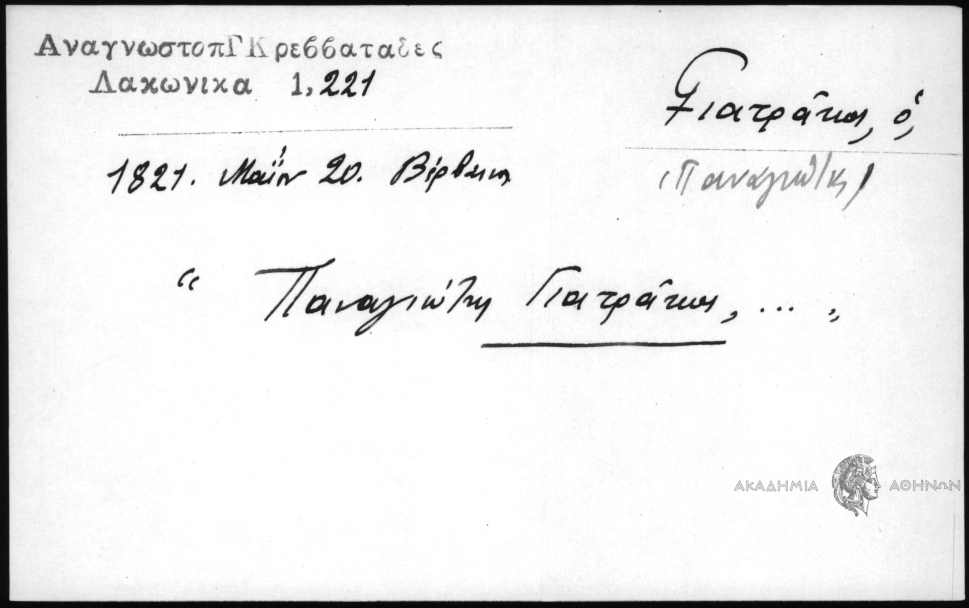 ΑναγνωστοπΓΚρεββαταδες
Λακωνικα 1,221
Γιατρᾶκος, ὁ,
(Παναγιώτης)
1821. Μαΐου 20. Βέρβαινα
“ Παναγιώτης Γιατρᾶκος, ... „
ΑΚΑΔΗΜΙΑ ΑΘΗΝΩΝ